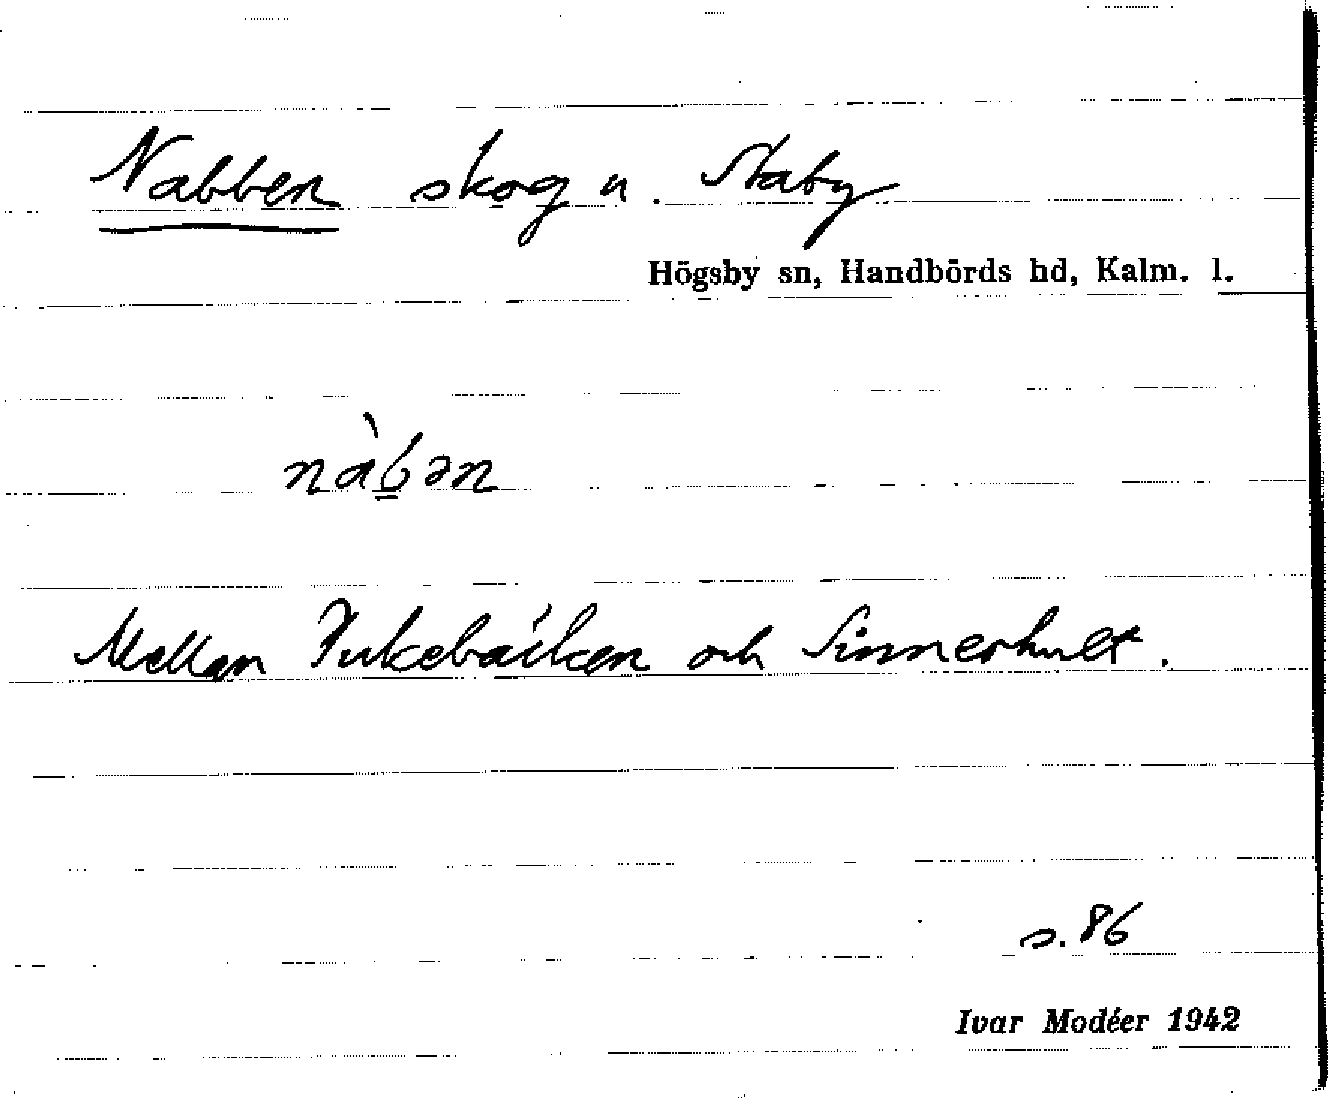 Nabben skog u. Staby
Högsby sn, Handbörds hd, Kalm. l.
nàb̲ən
Mellan Jukebäcken och Sinnerhult.
s. 86
Ivar Modéer 1942